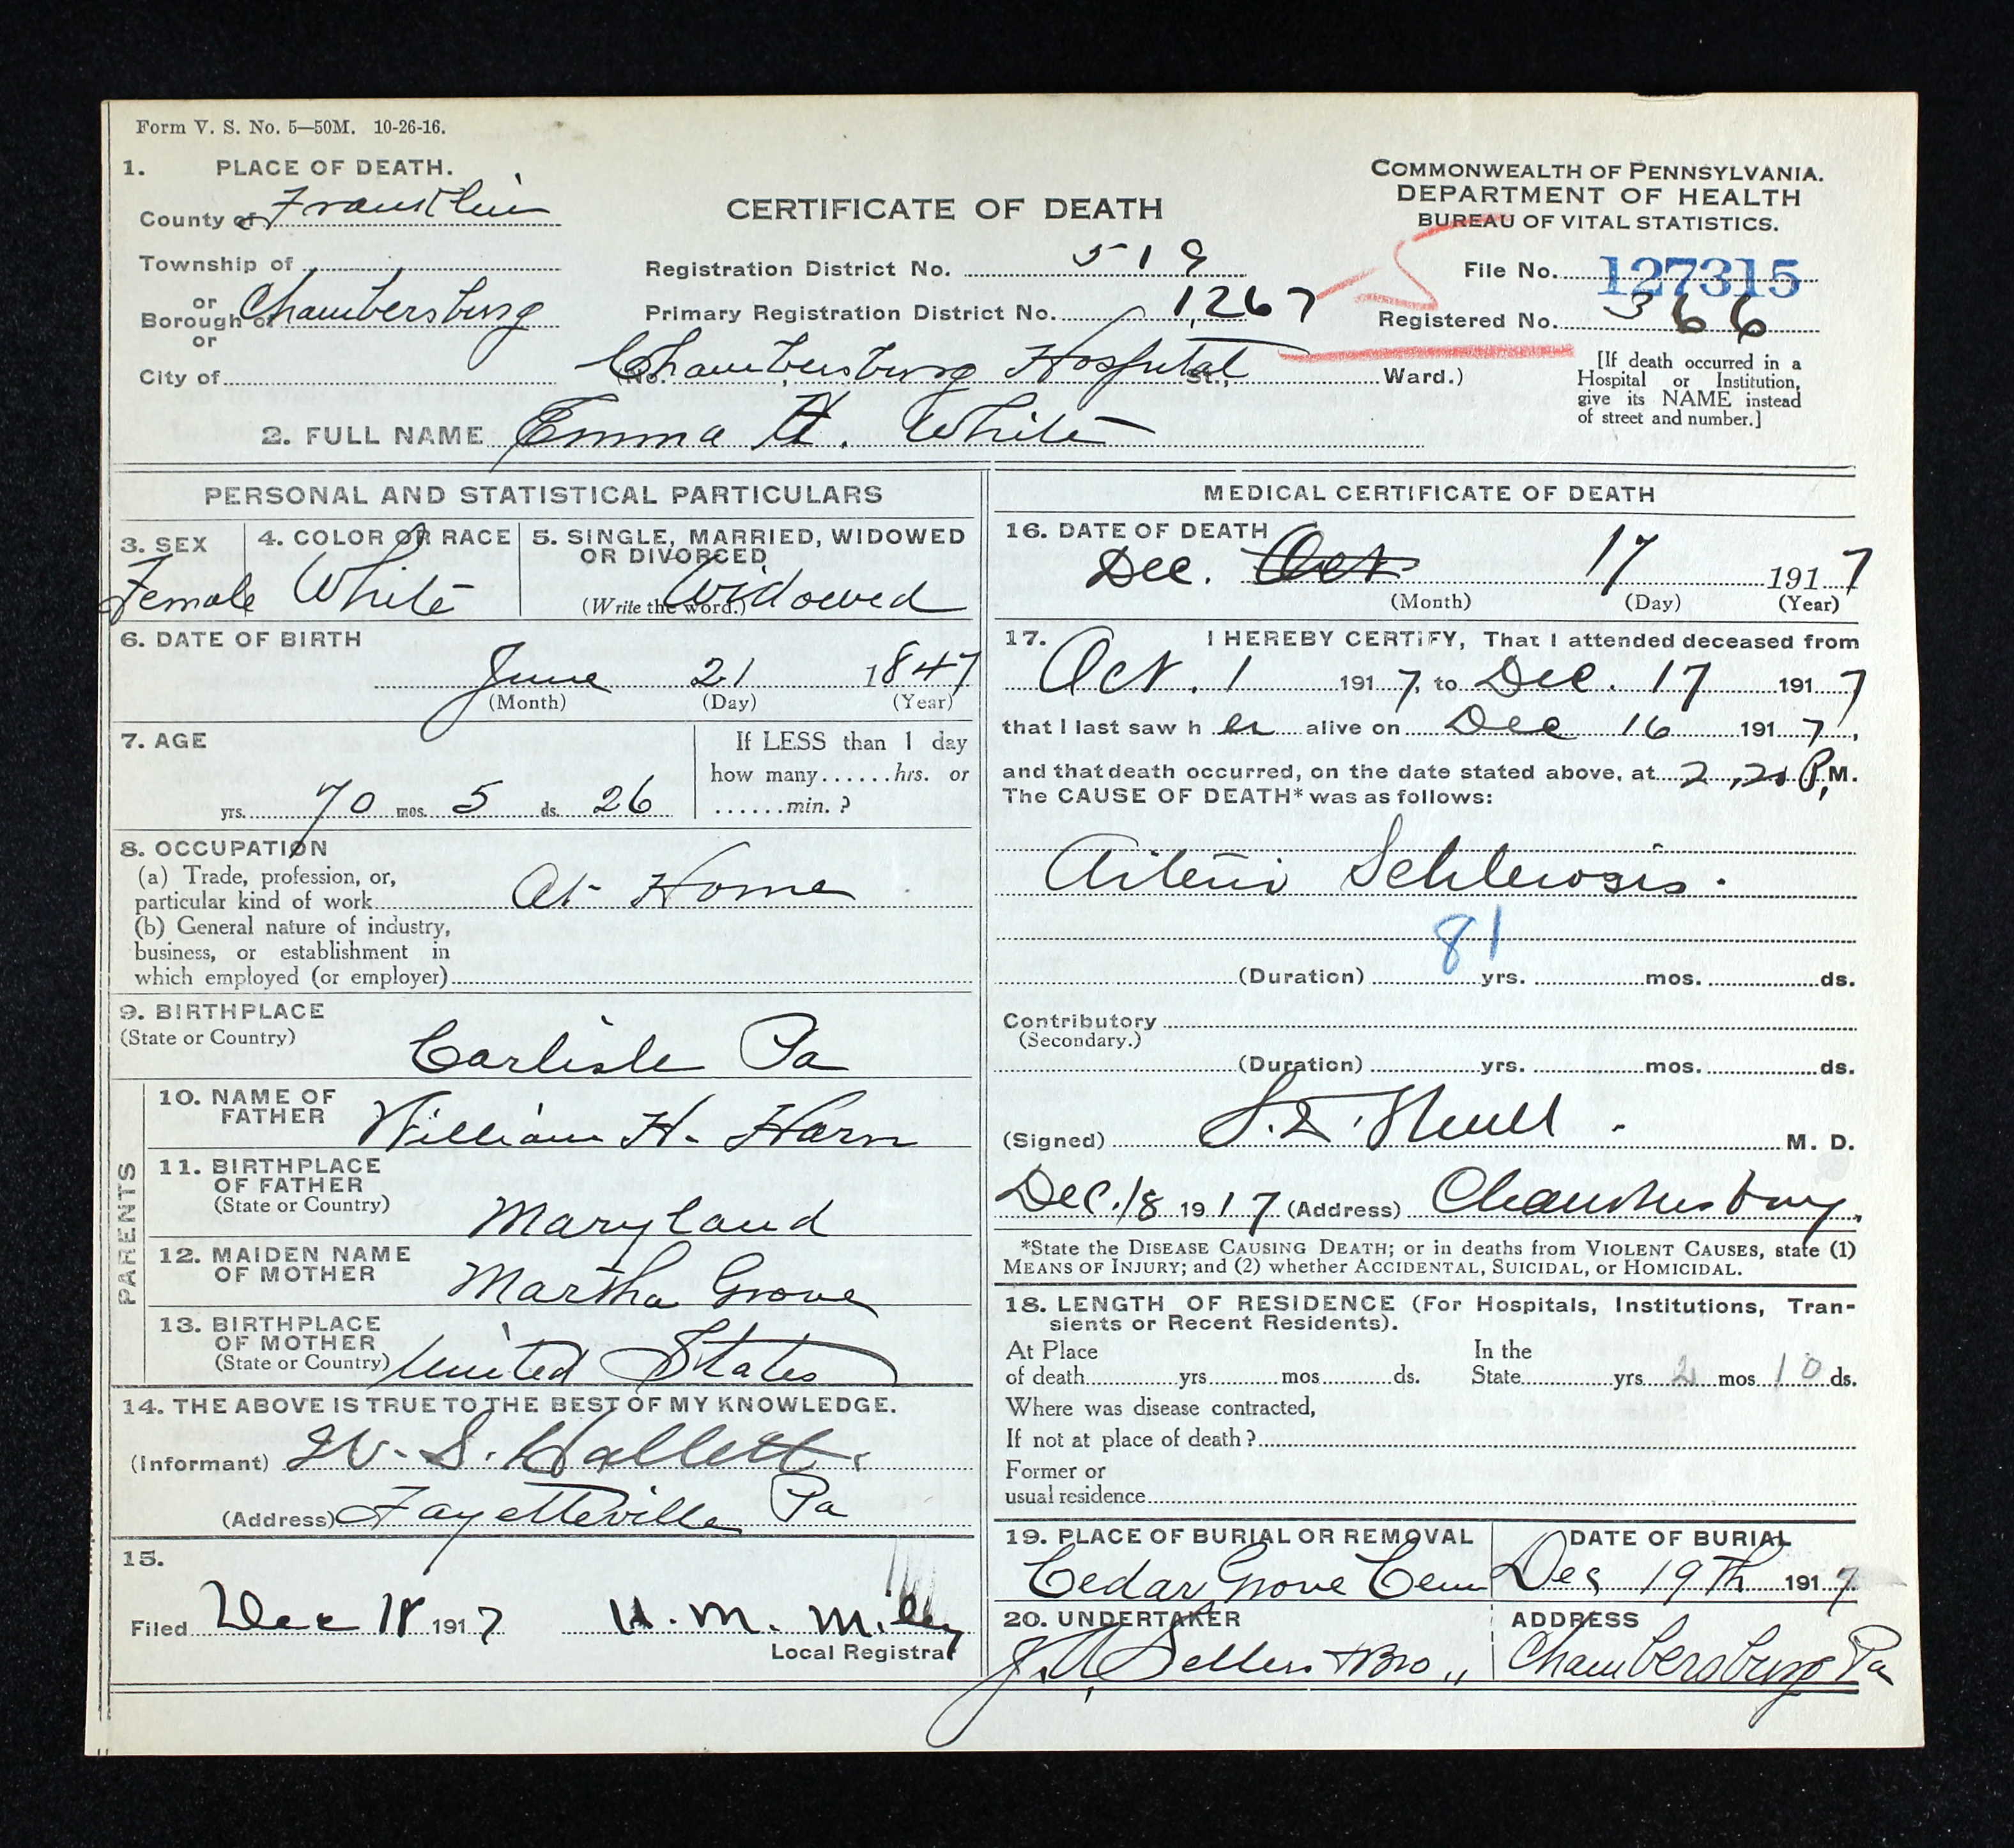 Form V. S. No. 5—50M. 10-26-16.
1. PLACE OF DEATH.
County of Franklin
Township of
or
Borough of Chambersburg
or
City of
CERTIFICATE OF DEATH
Registration District No. 519
Primary Registration District No. 1267
(No. Chambersburg Hospital St., Ward.)
COMMONWEALTH OF PENNSYLVANIA.
DEPARTMENT OF HEALTH
BUREAU OF VITAL STATISTICS.
File No. 127315
Registered No. 366
[If death occurred in a
Hospital or Institution,
give its NAME instead
of street and number.]
2. FULL NAME Emma H. White
PERSONAL AND STATISTICAL PARTICULARS
3. SEX
Female
4. COLOR OR RACE
White
5. SINGLE, MARRIED, WIDOWED
OR DIVORCED
(Write the word.) Widowed
6. DATE OF BIRTH
June 21 1847
(Month) (Day) (Year)
7. AGE
yrs. 70 mos. 5 ds. 26
If LESS than 1 day
how many......hrs. or
......min. ?
8. OCCUPATION
(a) Trade, profession, or,
particular kind of work At Home
(b) General nature of industry,
business, or establishment in
which employed (or employer)
9. BIRTHPLACE
(State or Country)
Carlisle Pa
PARENTS
10. NAME OF
FATHER William H. Harn
11. BIRTHPLACE
OF FATHER
(State or Country) Maryland
12. MAIDEN NAME
OF MOTHER Martha Grove
13. BIRTHPLACE
OF MOTHER
(State or Country) United States
14. THE ABOVE IS TRUE TO THE BEST OF MY KNOWLEDGE.
(Informant) W. S. Hallett
(Address) Fayetteville Pa
15.
Filed Dec 18 1917 H. M. Miley
Local Registrar
MEDICAL CERTIFICATE OF DEATH
16. DATE OF DEATH
Dec. Oct 17 1917
(Month) (Day) (Year)
17. I HEREBY CERTIFY, That I attended deceased from
Oct. 1 1917, to Dec. 17 1917
that I last saw h er alive on Dec 16 1917,
and that death occurred, on the date stated above, at 2,20 P,M.
The CAUSE OF DEATH* was as follows:
Arterio Schlerosis.
81
(Duration) yrs. mos. ds.
Contributory
(Secondary.)
(Duration) yrs. mos. ds.
(Signed) Shull M. D.
Dec. 18 1917 (Address) Chambersburg.
*State the DISEASE CAUSING DEATH; or in deaths from VIOLENT CAUSES, state (1)
MEANS OF INJURY; and (2) whether ACCIDENTAL, SUICIDAL, or HOMICIDAL.
18. LENGTH OF RESIDENCE (For Hospitals, Institutions, Tran-
sients or Recent Residents).
At Place
of death yrs mos ds.
In the
State yrs 2 mos 10 ds.
Where was disease contracted,
If not at place of death?
Former or
usual residence
19. PLACE OF BURIAL OR REMOVAL
Cedar Grove Cem
DATE OF BURIAL
Dec 19th 1917
20. UNDERTAKER
Sellers & Bro
ADDRESS
Chambersburg Pa